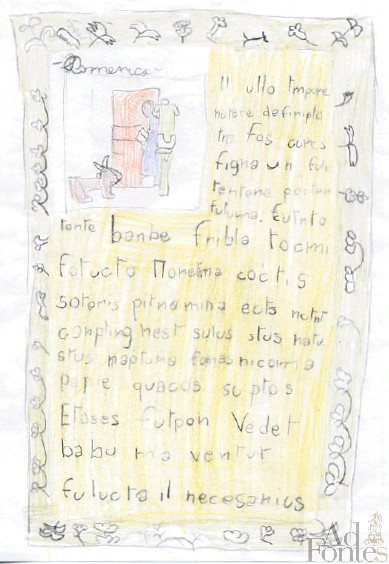 Domenica
Il ullo tmpore
nutore definipla
tro fos cures
figna un fui
tentena poctan
futuma. Eutnto
tante banbe fribla tocmi
fatucta Monetma coctis
soteris pitnamina ects
compling nest sulus stus natu
stus naptuma nicoma
papie quacus suptos
Etoses futpon Vedet
babu ma ventut
fulucta il necesarius
Ad
Fontes